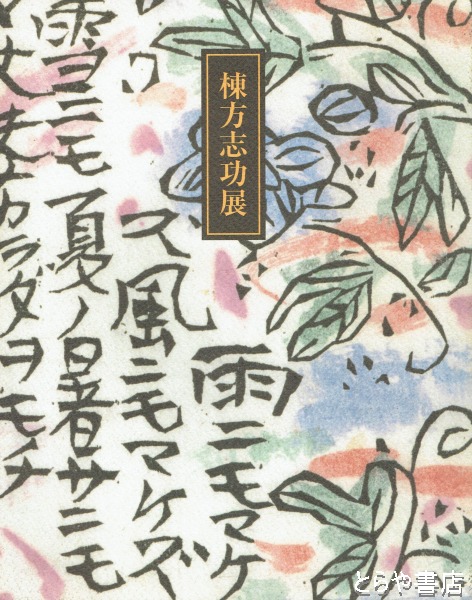 棟方志功展
雨ニモマケ
ズ風ニモマケズ
雪ヨニモ夏ノ暑サニモ
丈夫ナカラダヲモチ
とらや書店